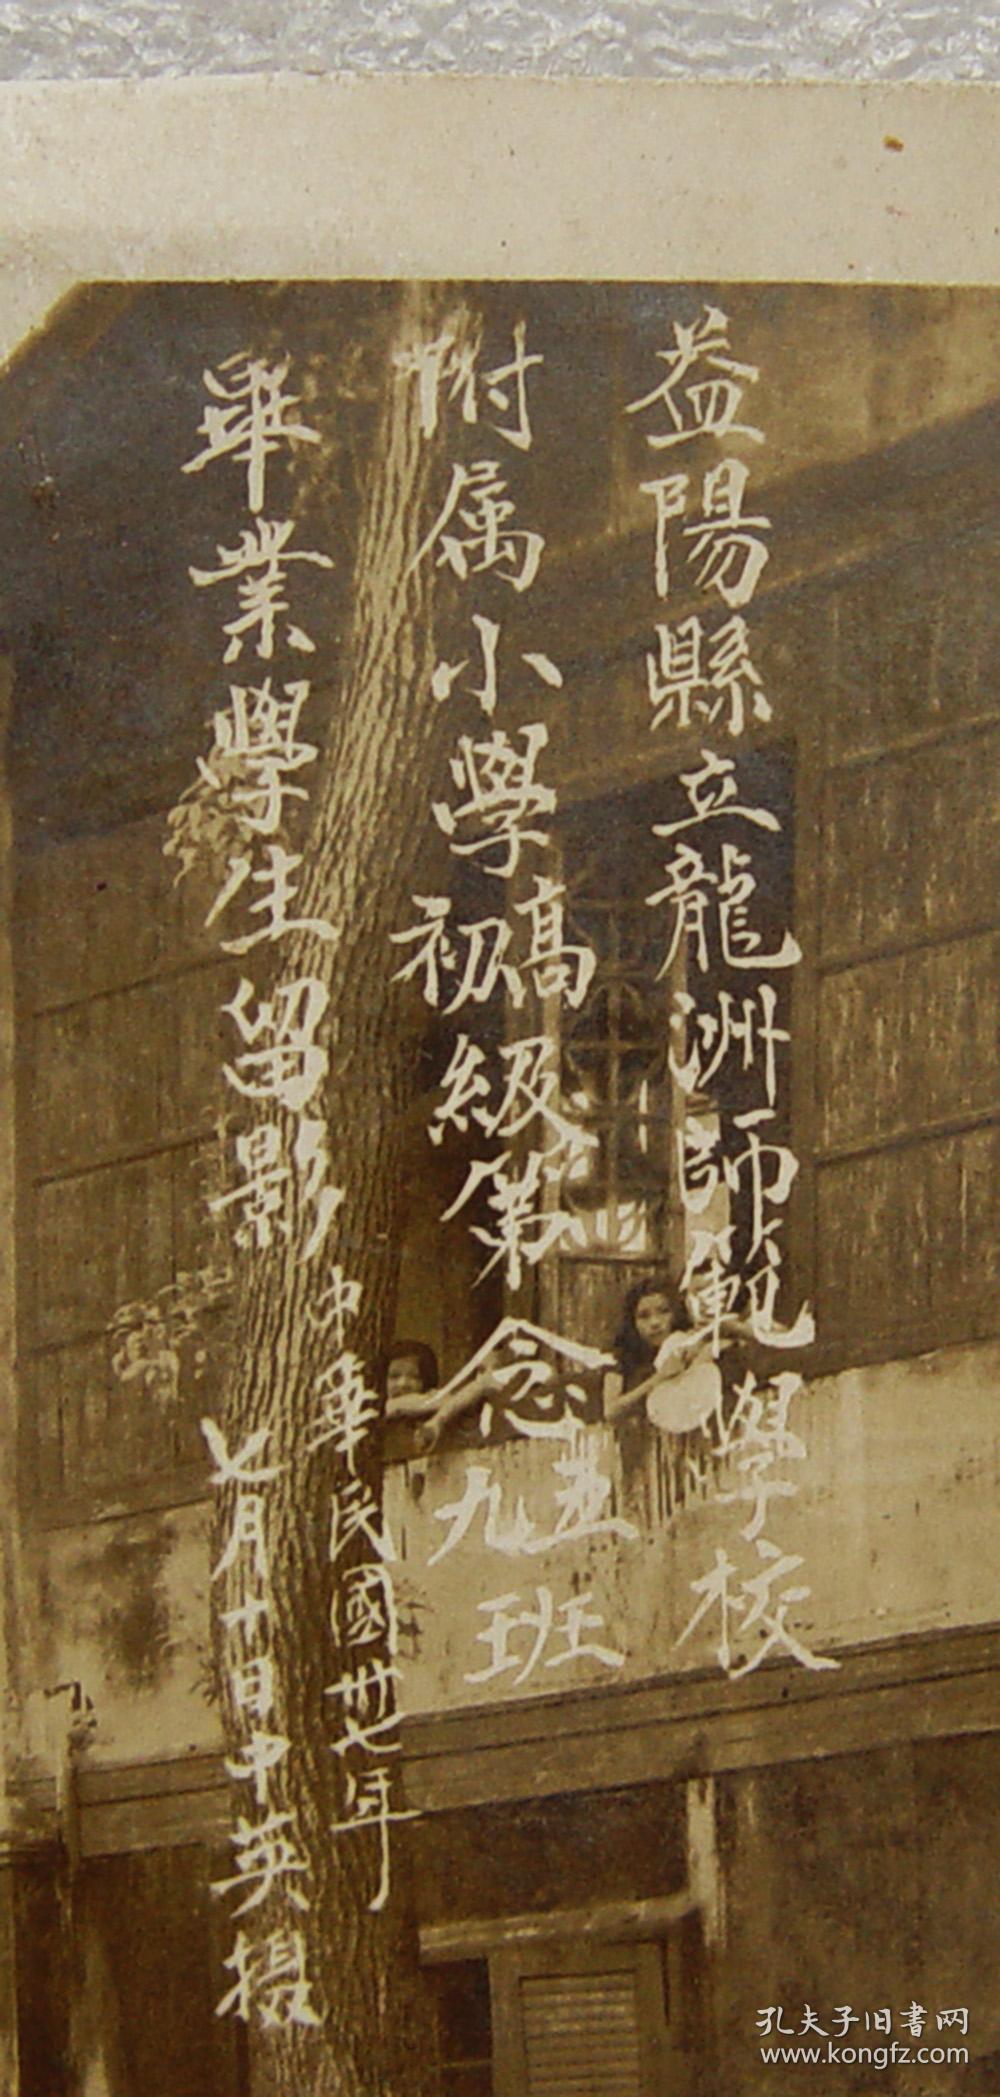 益陽縣立龍洲師範學校
附属小學高初級第念五九班
畢業學生留影
中華民國卅七年
七月十日中英摄
孔夫子旧書网
www.kongfz.com